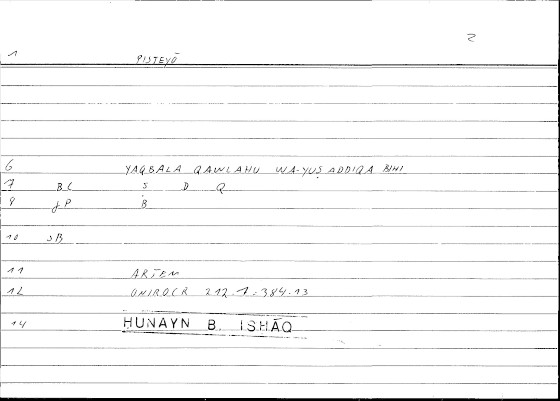 2
1 PISTEYŌ
6 YAQBALA QAWLAHU WA-YUṢADDIQA BIHI
7 BC S D Q
8 gP B
10 sB
11 ARTEM
12 ONIROCR 212.1 = 384.13
14 HUNAYN B. ISḤĀQ